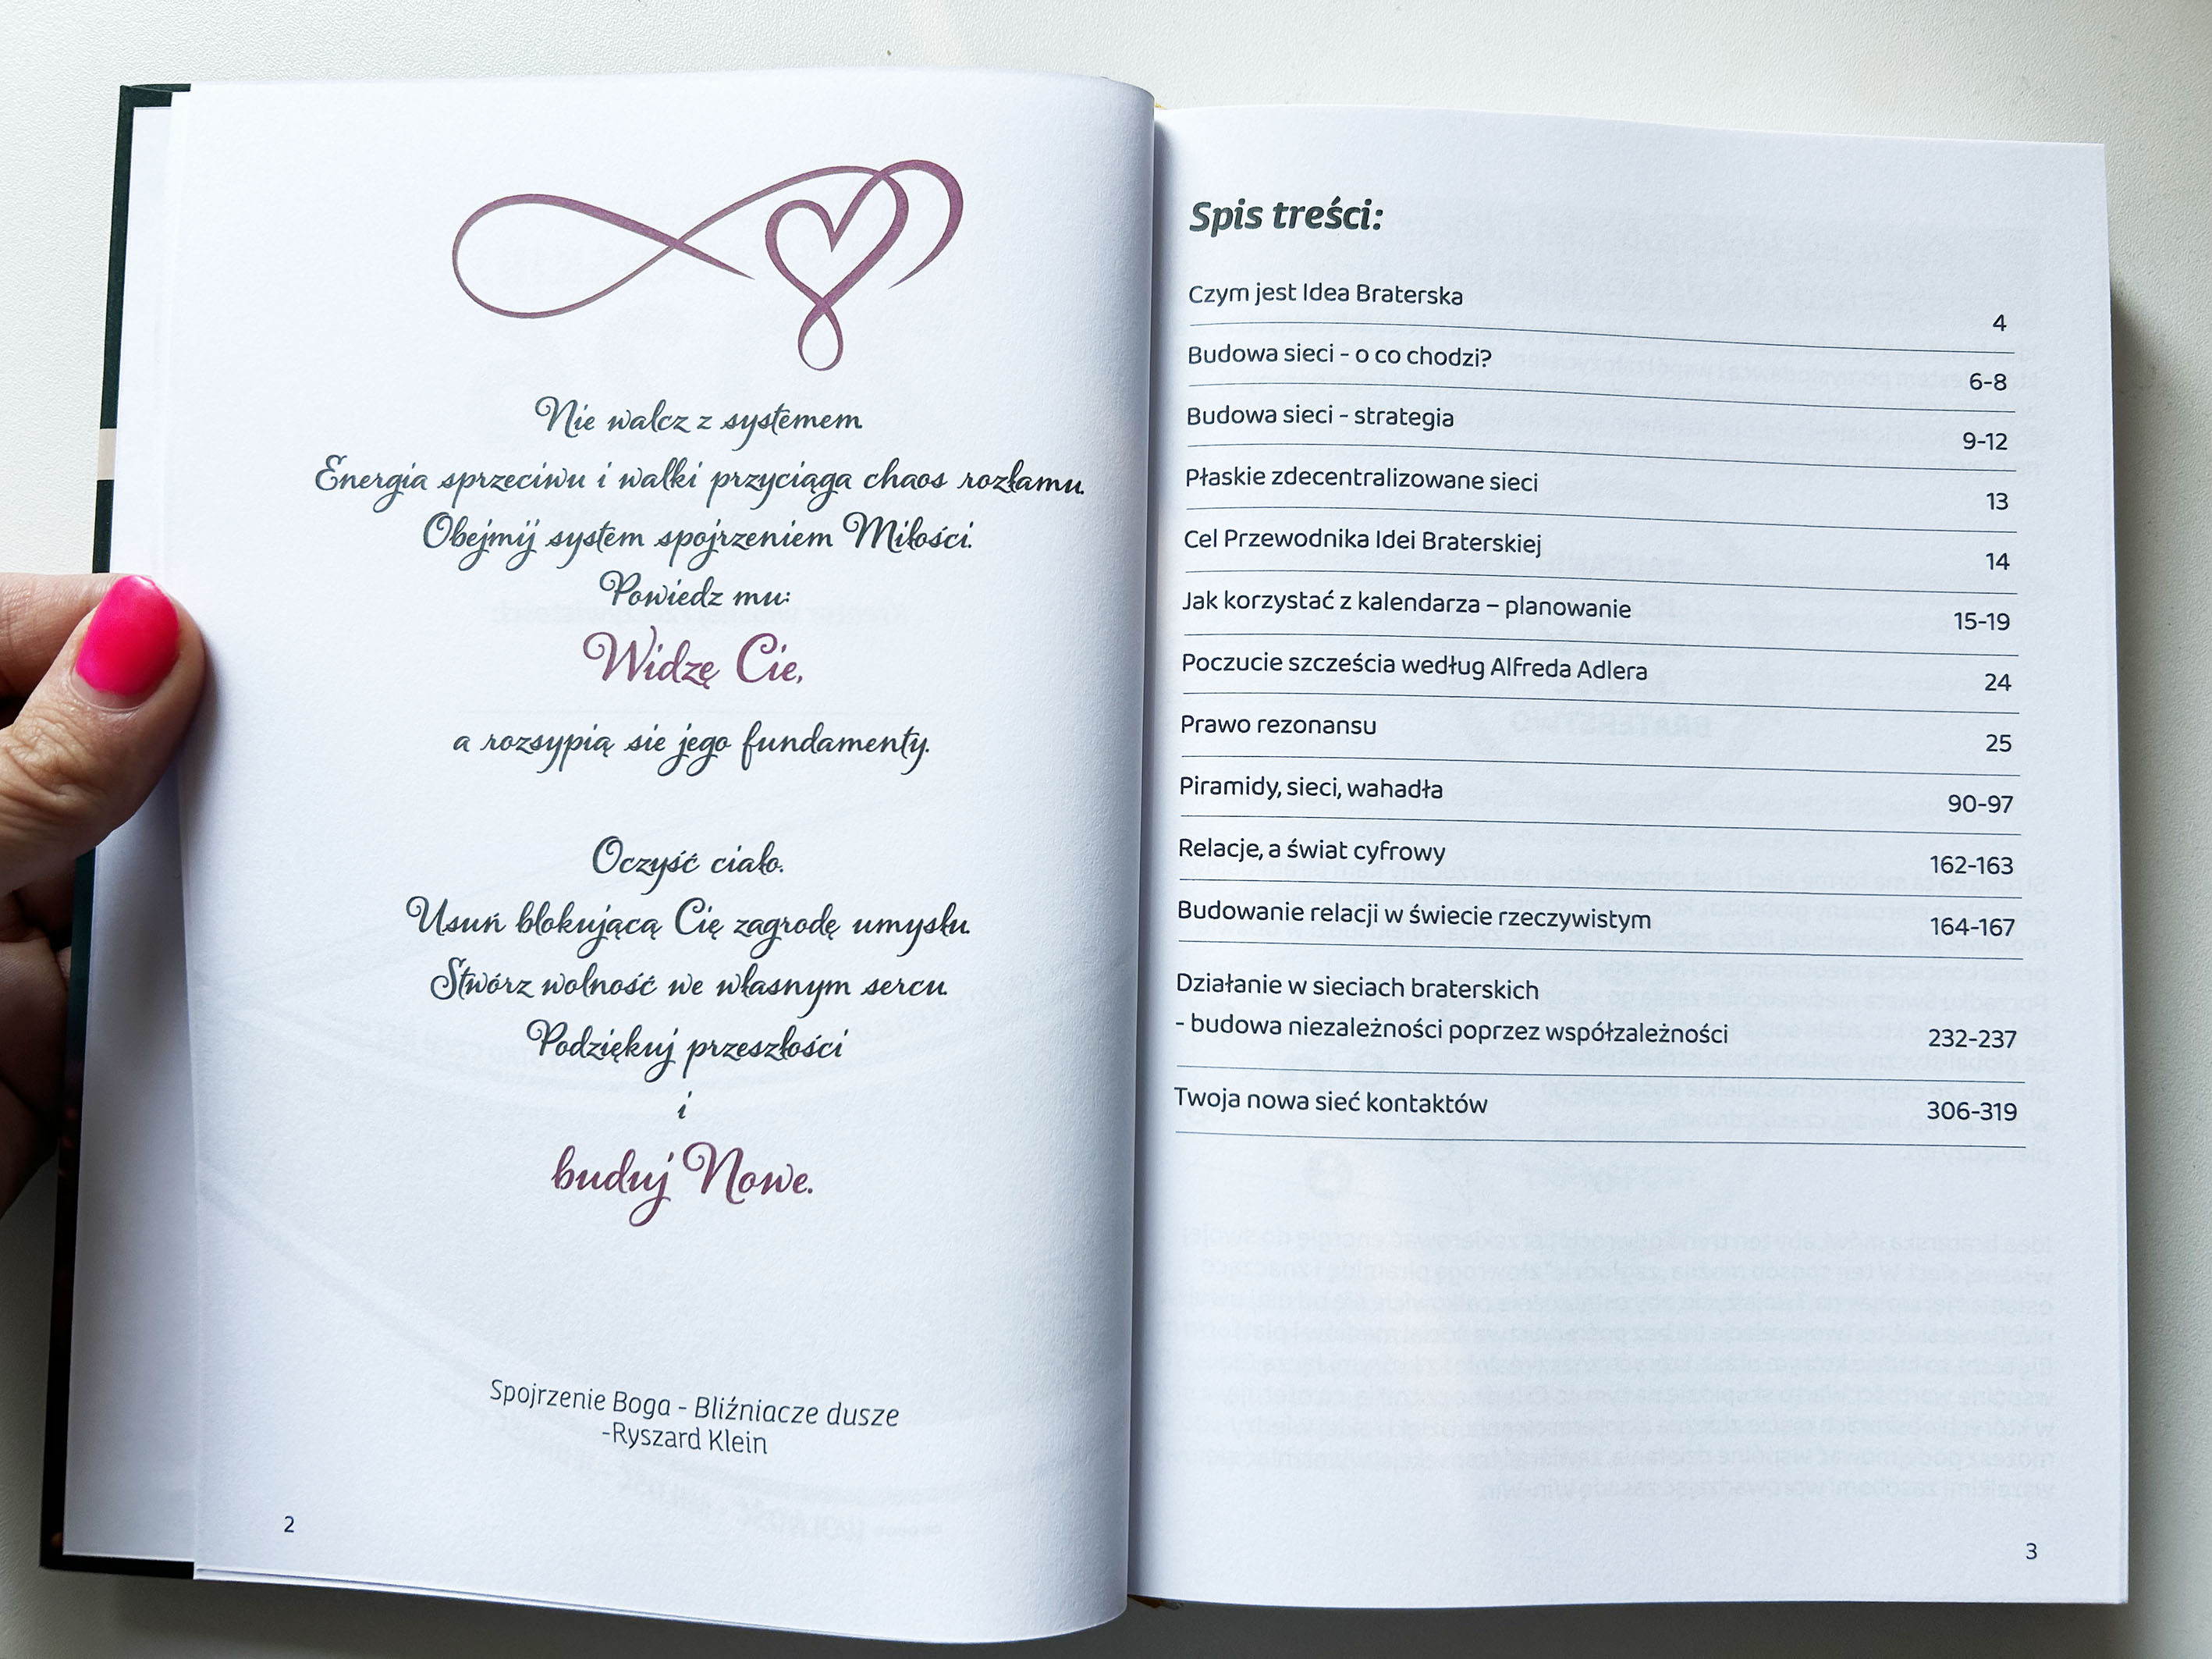 Nie walcz z systemem.
Energia sprzeciwu i walki przyciąga chaos rozłamu.
Obejmij system spojrzeniem Miłości.
Powiedz mu:
Widzę Cie,
a rozsypią sie jego fundamenty.
Oczyść ciało.
Usuń blokującą Cię zagrodę umysłu.
Stwórz wolność we własnym sercu.
Podziękuj przeszłości
i
buduj Nowe.
Spojrzenie Boga - Bliźniacze dusze
-Ryszard Klein
2
Spis treści:
Czym jest Idea Braterska 4
Budowa sieci - o co chodzi? 6-8
Budowa sieci - strategia 9-12
Płaskie zdecentralizowane sieci 13
Cel Przewodnika Idei Braterskiej 14
Jak korzystać z kalendarza – planowanie 15-19
Poczucie szcześcia według Alfreda Adlera 24
Prawo rezonansu 25
Piramidy, sieci, wahadła 90-97
Relacje, a świat cyfrowy 162-163
Budowanie relacji w świecie rzeczywistym 164-167
Działanie w sieciach braterskich
- budowa niezależności poprzez współzależności 232-237
Twoja nowa sieć kontaktów 306-319
3